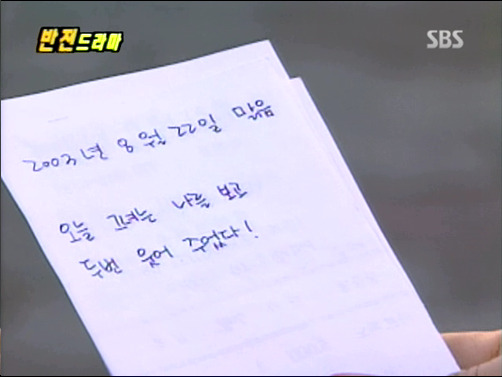 반전드라마
SBS
2003년 8월 22일 맑음
오늘 그녀는 나를 보고
두번 웃어 주었다!